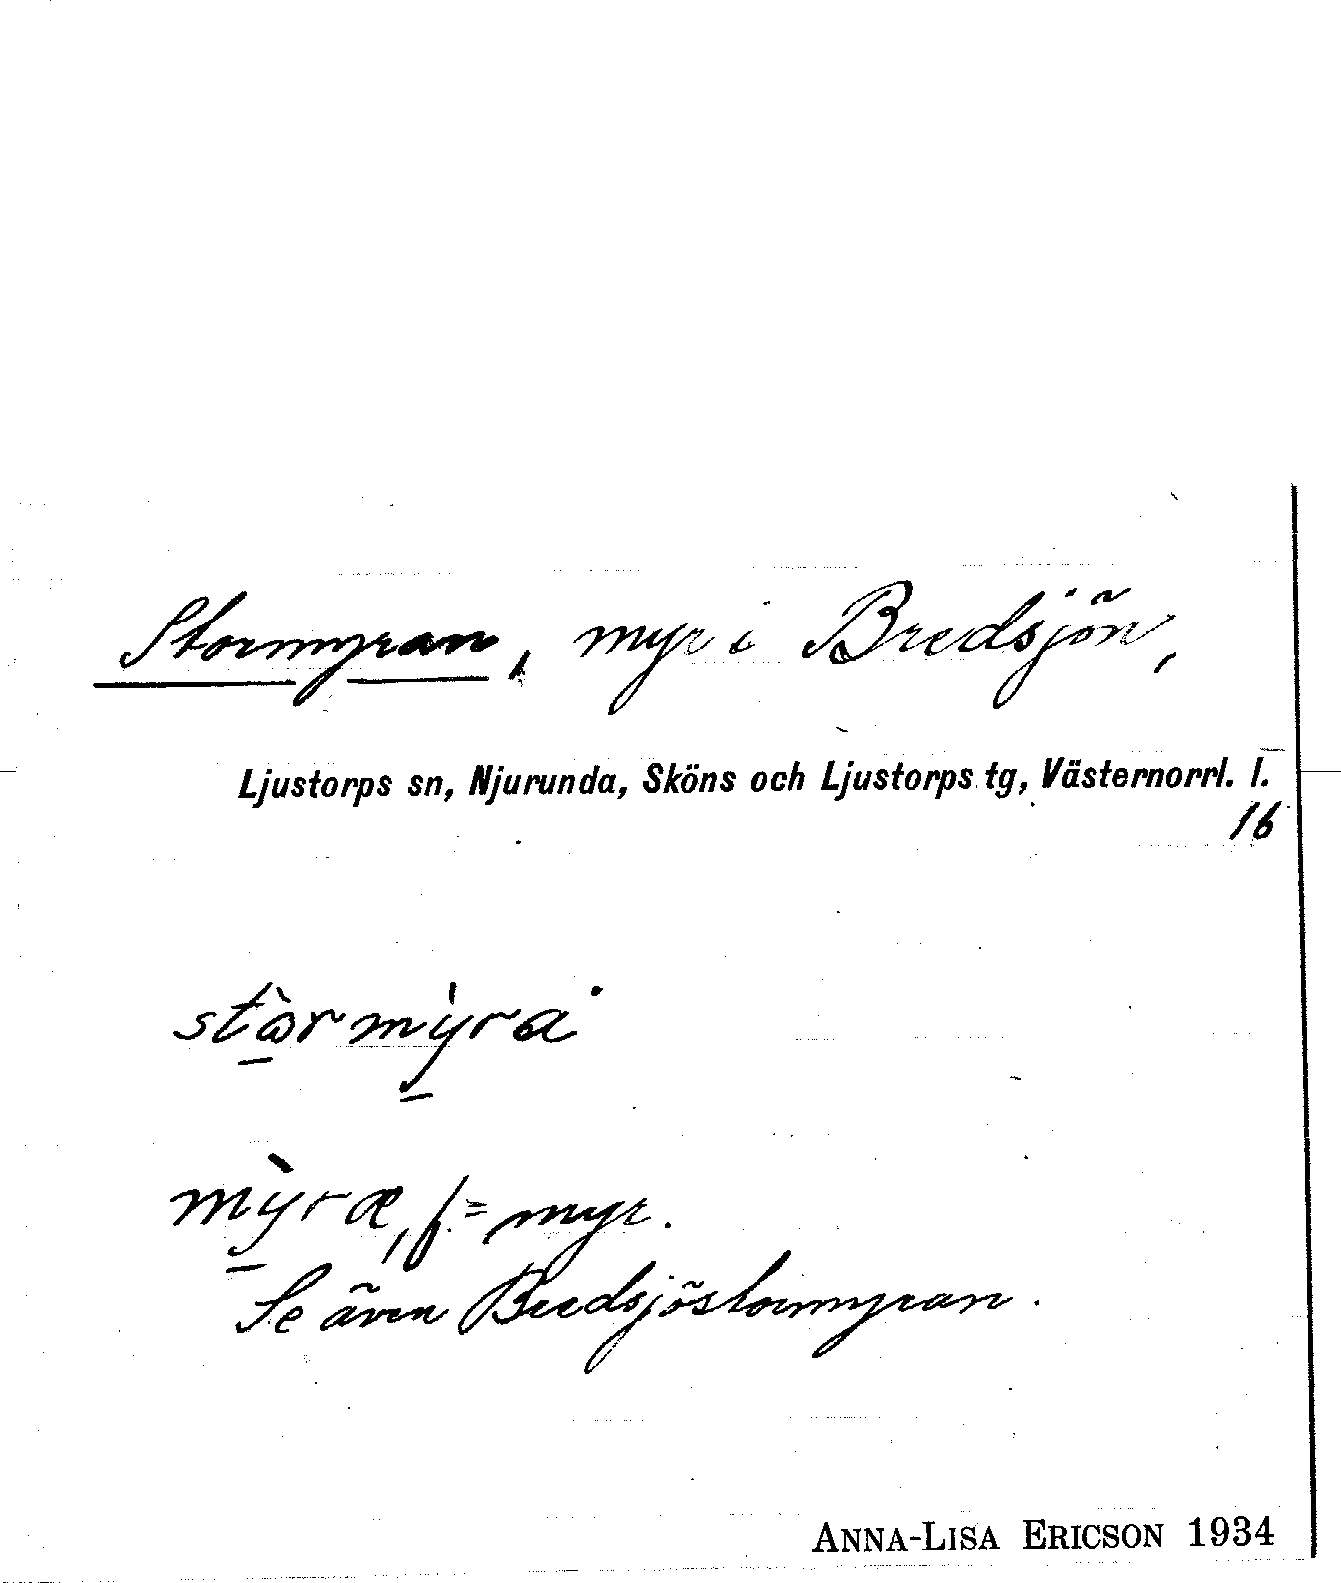 Stormyran, myr i Bredsjön,
Ljustorps sn, Njurunda, Sköns och Ljustorps tg, Västernorrl. l.
16
stòrmỳra
mỳræ, f. = myr.
Se även Bredsjöstormyran.
ANNA-LISA ERICSON 1934